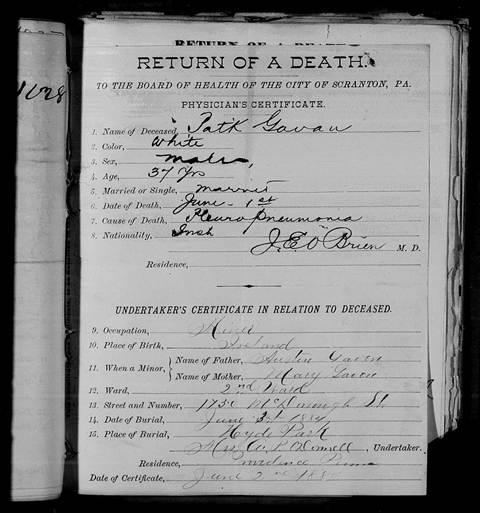 RETURN OF A DEATH
RETURN OF A DEATH.
TO THE BOARD OF HEALTH OF THE CITY OF SCRANTON, PA.
PHYSICIAN'S CERTIFICATE.
1. Name of Deceased, Patk Gavan
2. Color, White
3. Sex, Male,
4. Age, 37 Yrs
5. Married or Single, Married
6. Date of Death, June 1st
7. Cause of Death, Pleuro pneumonia
8. Nationality, Irish
J. E. O'Brien M. D.
Residence,
UNDERTAKER'S CERTIFICATE IN RELATION TO DECEASED.
9. Occupation, Miner
10. Place of Birth, Ireland
11. When a Minor, Name of Father, Austin Gavan
Name of Mother, Mary Gavan
12. Ward, 2nd Ward
13. Street and Number, St.
14. Date of Burial, June
15. Place of Burial, Hyde Park
Mrs. O'Donnell, Undertaker.
Residence, Providence Penna
Date of Certificate, June 2nd 188